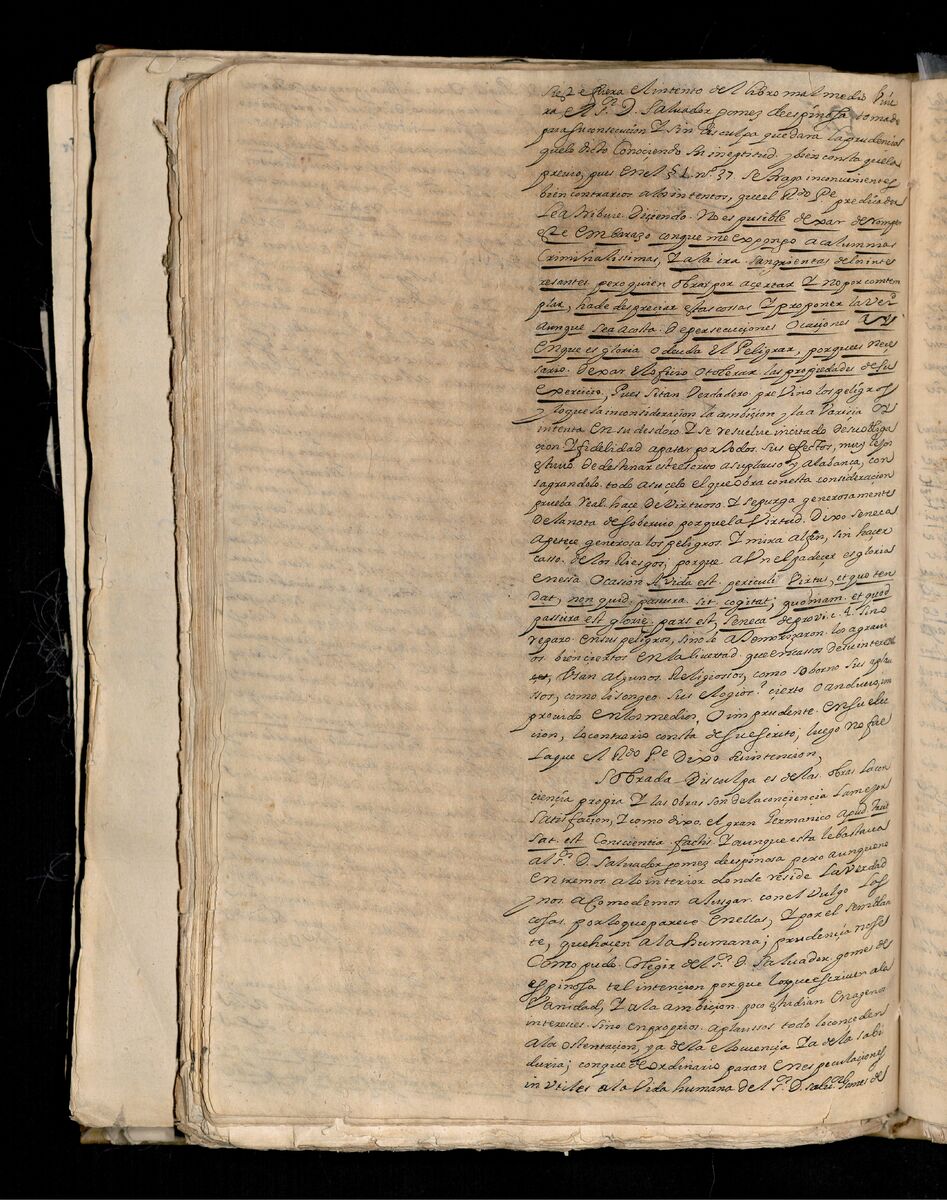 si este fuera el intento del libro mal medio huvie
ra el Sr. D. Salvador gomez de espinosa tomado
para su consecucion Y sin disculpa quedara la prudencia
que le dicto Conociendo su ineptitud y bien consta que la
previo, pues en el § 1. nº. 37. se trago inconuinientes
bien contrarios a los intentos, que el Rdo Pe predicador
Le atribuie Diçiendo. No es pusible dexar de romper
este Embarazo conque me expongo a calumnias
Criminalissimas, Y a la ira sangrientas de los inte
resantes pero quien obras por açertar Y no por contem
plar, ha de despreciar estas cosas Y proponer la Verd
aunque sea a costa. De persecuciones Ocaçiones
En que es gloria o deuda el Peligrar, porque es neçe
sario. Dexar el ofiçio o tolerar las propiedades de su
exerçicio, Pues si tan Verdadero preVino los peligros
y lo que la inconsideraçion la ambiçion y la aVariçia
intenta en su desdoro. Y se resuelve incitado de su obliga
çion Y fidelidad a pasar por todos sus efectos, muy lejos
estuuo de destinar este escrito a su plauso y Alabança, con
sagrandolo todo a su çelo el que obra con esta consideraçion
prueba real. haçe De Virtuoso. Y se purga generosamente
De la nota de soberuio porque la Virtud. Dixo seneca
Apeteçe generosa los peligros. Y mira al fin, sin haçer
casso. de los Riesgos; porque aVn el padeçer es gloria
en essa Ocasion AVida est. periculi Virtus, et quo ten
dat, non quid. pasura. sit. cogitat; quoniam. et quod
passura est gloriæ. pars est, Seneca de provi. c. 4. sino
reparo en sus peligros, sino le
os bien çientos en la liuertad. que en cassos de su interes
Vsan algunos Religiossos, como soborno sus aplau
ssos, como lisongeo sus elogios? çierto o anduuo, im
prouido en los medios, O imprudente. en su elec
cion, lo contrario consta de su escrito; luego no fue
la que el Rdo Pe Dixo su intencion,
Sobrada Disculpa es de las obras la con
çiençia propia Y las obras son de la conçiençia la mejor
satisfaçion, Y como dixo. el gran Germanico apud
Sat. est Conscientia factis Y aunque esta le bastaua
al Sr. D. Salvador gomez de espinosa pero aunque no
entremos a lo interior donde reside la Verdad
y nos acomodemos a lusgar con el Vulgo las
cosas por lo que pareçe en ellas, Y por el semblan
te, que haçen a la humana; prudençia no se
Como pudo. Colegir del Sr. D. Salvador. gomes de
espinosa tal intencion porque los que escriuen a la
Vanidad, Y a la ambiçion. poco estudian en agenos
intereces. Sino en proprios. aplaussos todo lo conceden
a la ostentacion, ya de la eloquencia Ya de la sabi
duria; con que de Ordinario paran en especulaçiones
inVtiles a la Vida humana del Sr. D. Salur. Gomes de